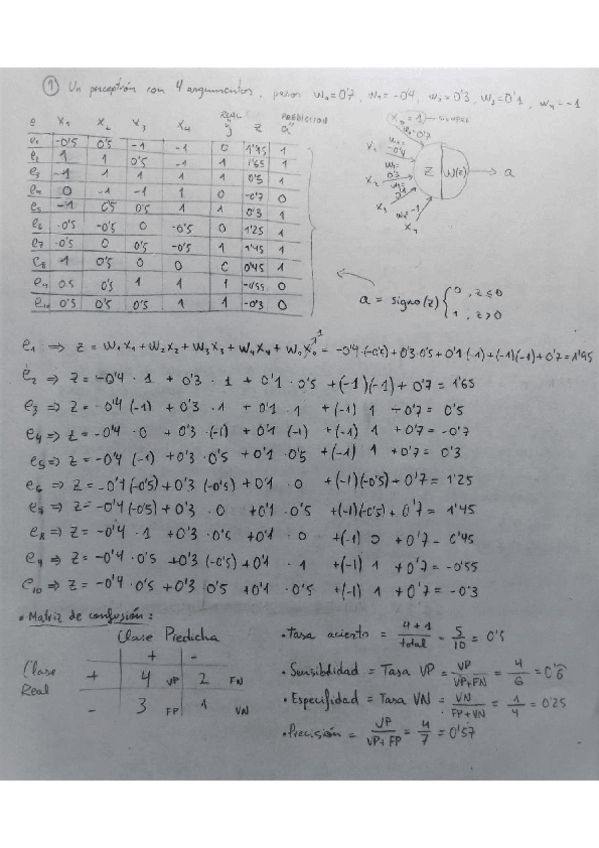 ① Un perceptrón con 4 argumentos, pesos w₀=0'7, w₁=-0'4, w₂=0'3, w₃=0'1, w₄=-1
e x₁ x₂ x₃ x₄ REAL y z PREDICCION a"
e₁ -0'5 0'5 -1 -1 0 1'95 1
e₂ 1 1 0'5 -1 1 1'65 1
e₃ -1 1 1 1 1 0'5 1
e₄ 0 -1 -1 1 0 -0'7 0
e₅ -1 0'5 0'5 1 1 0'3 1
e₆ -0'5 -0'5 0 -0'5 0 1'25 1
e₇ -0'5 0 0'5 -0'5 1 1'45 1
e₈ 1 0'5 0 0 0 0'45 1
0'5 1 1 1 -0'55 0
e₁₀ 0'5 0'5 0'5 1 1 -0'3 0
x₀=1 SIEMPRE
w₀=0'7
x₁
-0'4
x₂
x₃
x₄
z w(z) → a
a = signo(z) { 0, z≤0
1, z>0
e₁ ⇒ z = w₁x₁+w₂x₂+w₃x₃+w₄x₄+w₀x₀ = -0'4·(-0'5)+0'3·0'5+0'1(-1)+(-1)(-1)+0'7=1'95
e₂ ⇒ z = -0'4 · 1 + 0'3 · 1 + 0'1 · 0'5 +(-1)(-1) + 0'7 = 1'65
e₃ ⇒ z = -0'4 (-1) + 0'3 · 1 + 0'1 · 1 +(-1) 1 +0'7 = 0'5
e₄ ⇒ z = -0'4 · 0 + 0'3 · (-1) + 0'1 (-1) +(-1) 1 +0'7 = -0'7
e₅ ⇒ z = -0'4 (-1) +0'3 · 0'5 +0'1 0'5 +(-1) 1 +0'7 = 0'3
e₆ ⇒ z = -0'4(-0'5)+0'3 (-0'5) +0'1 · 0 +(-1)(-0'5)+0'7 = 1'25
e₇ ⇒ z = -0'4(-0'5)+0'3 · 0 +0'1 · 0'5 +(-1)(-0'5)+0'7 = 1'45
e₈ ⇒ z = -0'4 · 1 +0'3 · 0'5 +0'1 · 0 +(-1) 0 +0'7 = 0'45
e₉ ⇒ z = -0'4 · 0'5 +0'3 (-0'5) +0'1 · 1 +(-1) 1 +0'7 = -0'55
e₁₀ ⇒ z = -0'4 · 0'5 +0'3 0'5 +0'1 · 0'5 +(-1) 1 +0'7 = -0'3
• Matriz de confusión:
Clase Predicha
+ -
Clase Real + 4 VP 2 FN
- 3 FP 1 VN
• Tasa acierto = 4+1/total = 5/10 = 0'5
• Sensibilidad = Tasa VP = VP/VP+FN = 4/6 = 0'6
• Especifidad = Tasa VN = VN/FP+VN = 1/4 = 0'25
• Precisión = VP/VP+FP = 4/7 = 0'57